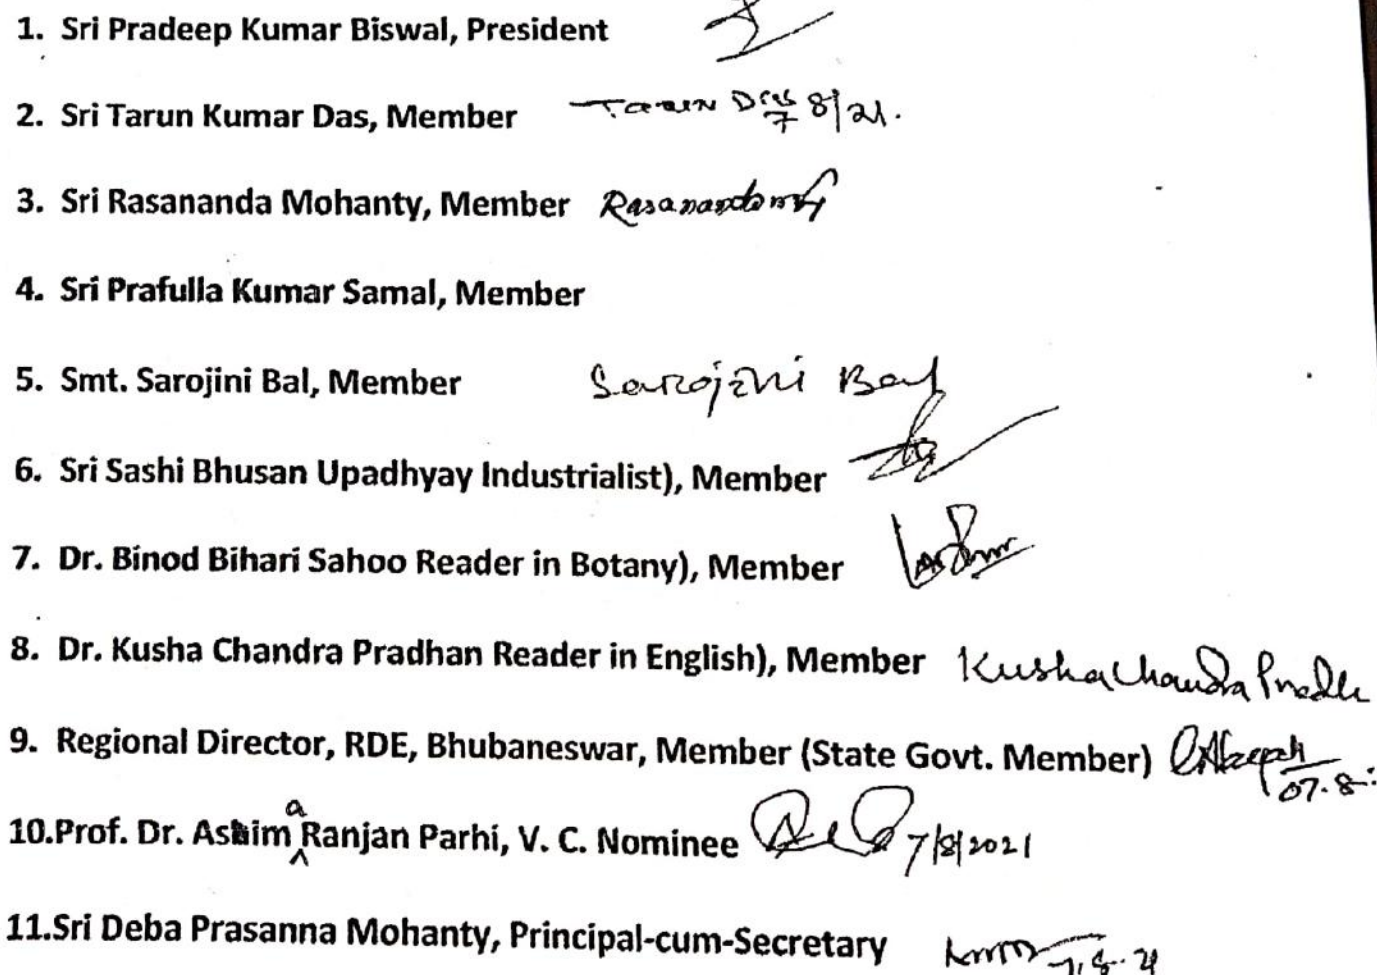 1. Sri Pradeep Kumar Biswal, President
2. Sri Tarun Kumar Das, Member Tarun Das 7 8/21.
3. Sri Rasananda Mohanty, Member
4. Sri Prafulla Kumar Samal, Member
5. Smt. Sarojini Bal, Member Sarojini Bal
6. Sri Sashi Bhusan Upadhyay Industrialist), Member
7. Dr. Binod Bihari Sahoo Reader in Botany), Member
8. Dr. Kusha Chandra Pradhan Reader in English), Member Kusha Chandra
9. Regional Director, RDE, Bhubaneswar, Member (State Govt. Member) 07.8.
a
10.Prof. Dr. Ashim Ranjan Parhi, V. C. Nominee 7/8/2021
11.Sri Deba Prasanna Mohanty, Principal-cum-Secretary 7.8.21